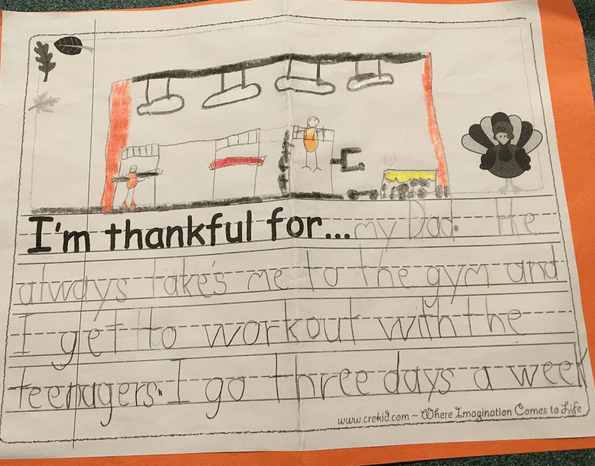 I'm thankful for... my Dad. He
always take's me to the gym and
I get to workout with the
teenagers. I go three days a week
www.crekid.com ~ Where Imagination Comes to Life